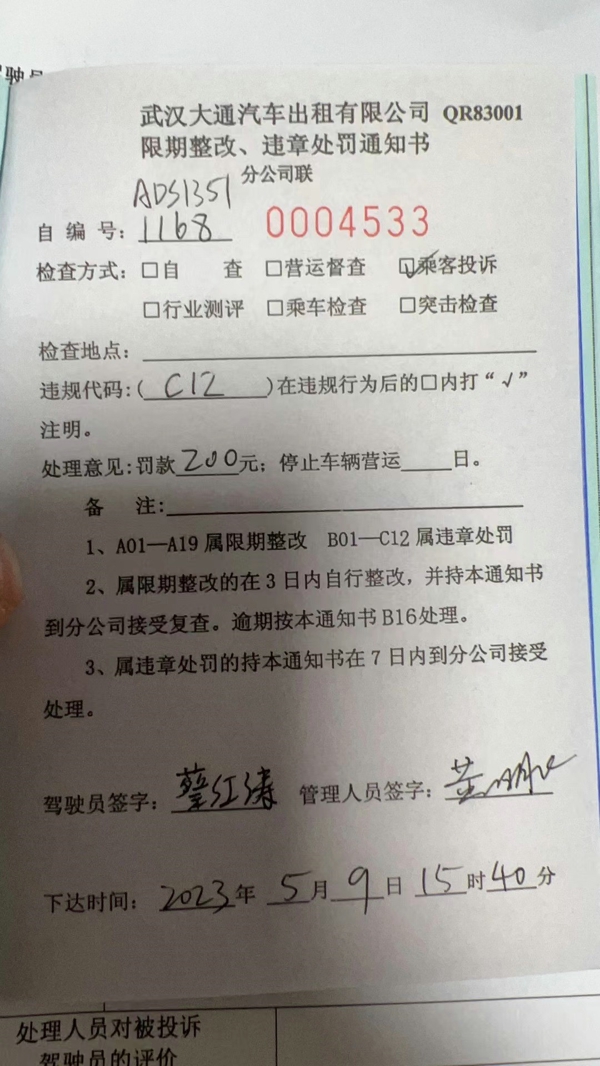 武汉大通汽车出租有限公司 QR83001
限期整改、违章处罚通知书
分公司联
ADS1351
自 编 号：1168 0004533
检查方式：□自 查 □营运督查 ☑乘客投诉
□行业测评 □乘车检查 □突击检查
检查地点：
违规代码：(C12)在违规行为后的□内打“√”
注明。
处理意见:罚款200元；停止车辆营运____日。
备 注:
1、A01—A19 属限期整改 B01—C12 属违章处罚
2、属限期整改的在 3 日内自行整改，并持本通知书
到分公司接受复查。逾期按本通知书 B16处理。
3、属违章处罚的持本通知书在 7 日内到分公司接受
处理。
驾驶员签字：蔡红涛 管理人员签字：
下达时间： 2023年 5月 9日 15时40分
处理人员对被投诉
驾驶员的评价